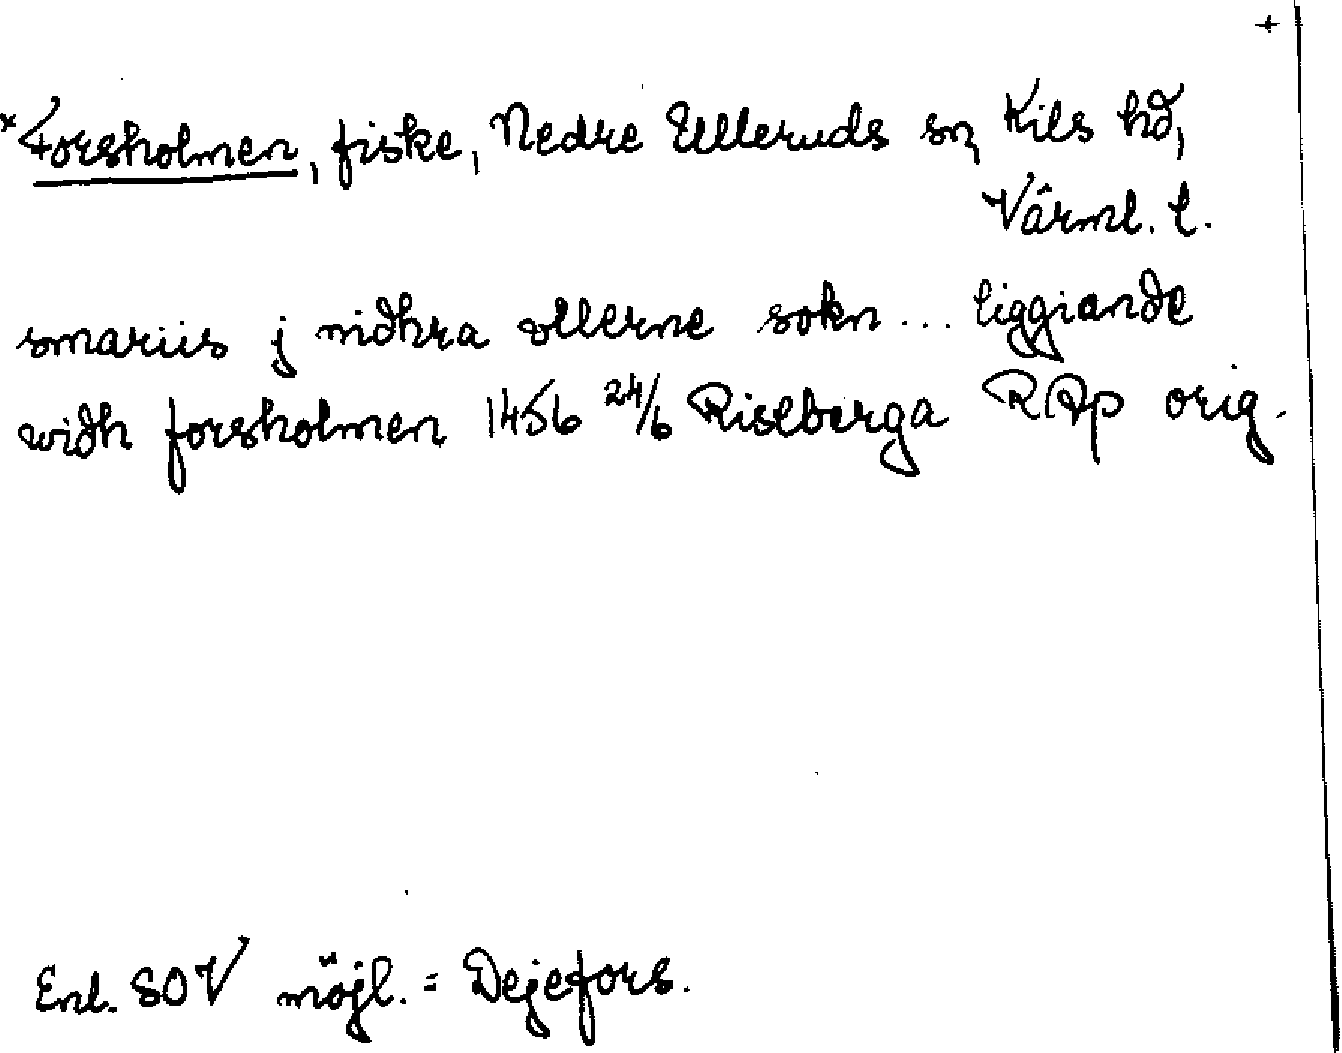 +
*Forsholmen, fiske, Nedre Ulleruds sn, Kils hd,
Värml. l.
smariis j nidhra ollerne sokn... liggiande
widh forsholmen 1456 24/6 Riseberga RAp orig.
Enl. SOV möjl. = Dejefors.